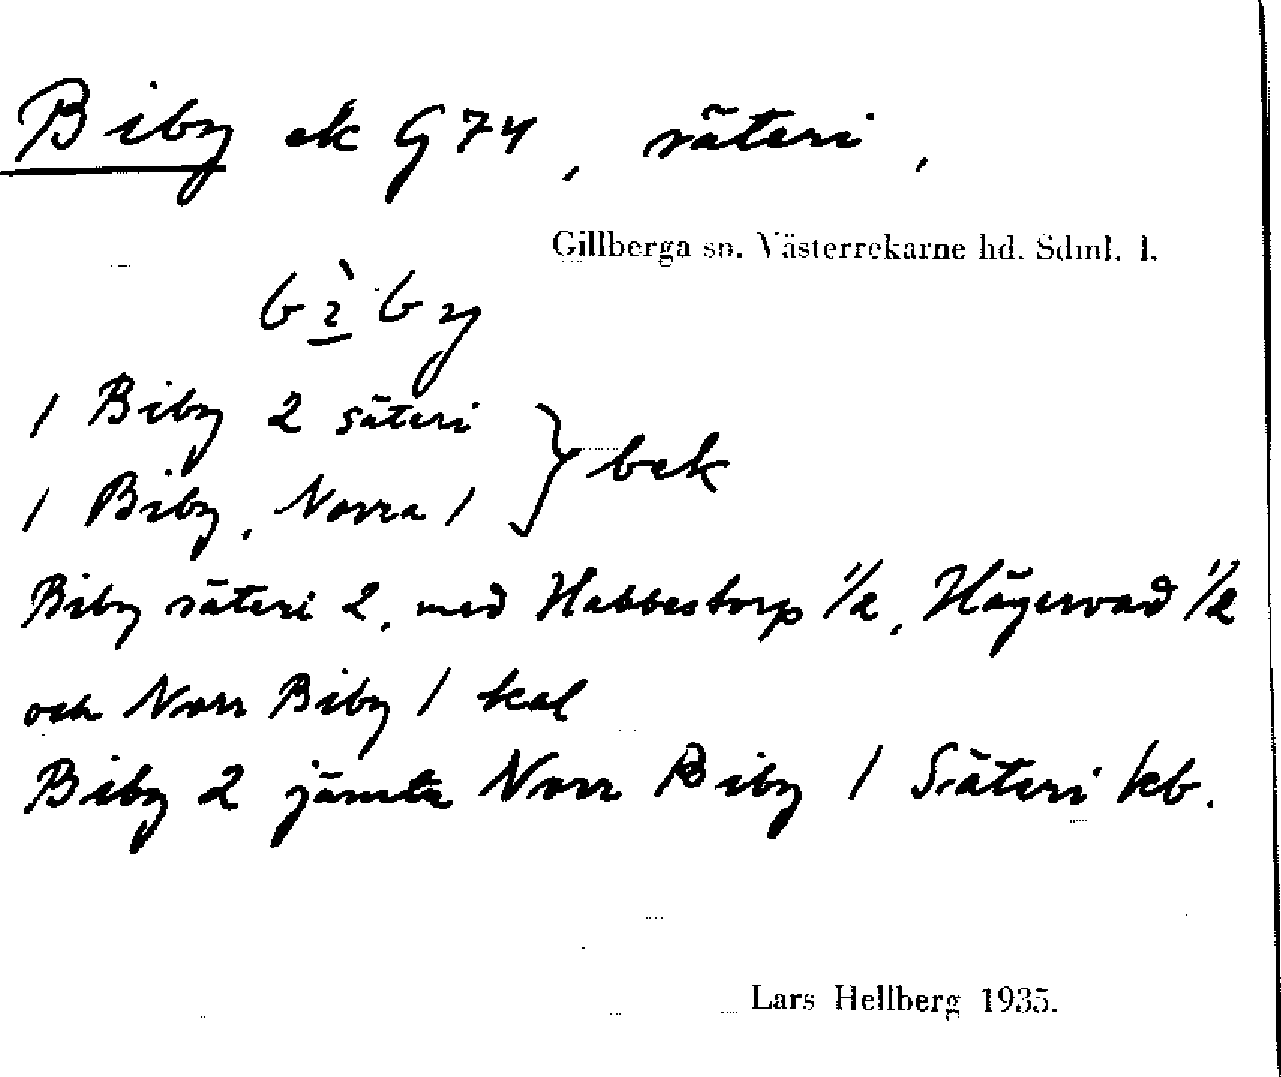 Biby ek G74, säteri,
Gillberga sn. Västerrekarne hd. Sdml. l.
bì̱by
1 Biby 2 säteri
1 Biby, Norra 1 } bek
Biby säteri 2, med Habbestorp 1/2, Hägervad 1/2
och Norr Biby 1 kal
Biby 2 jämte Norr Biby 1 Säteri kb.
Lars Hellberg 1935.